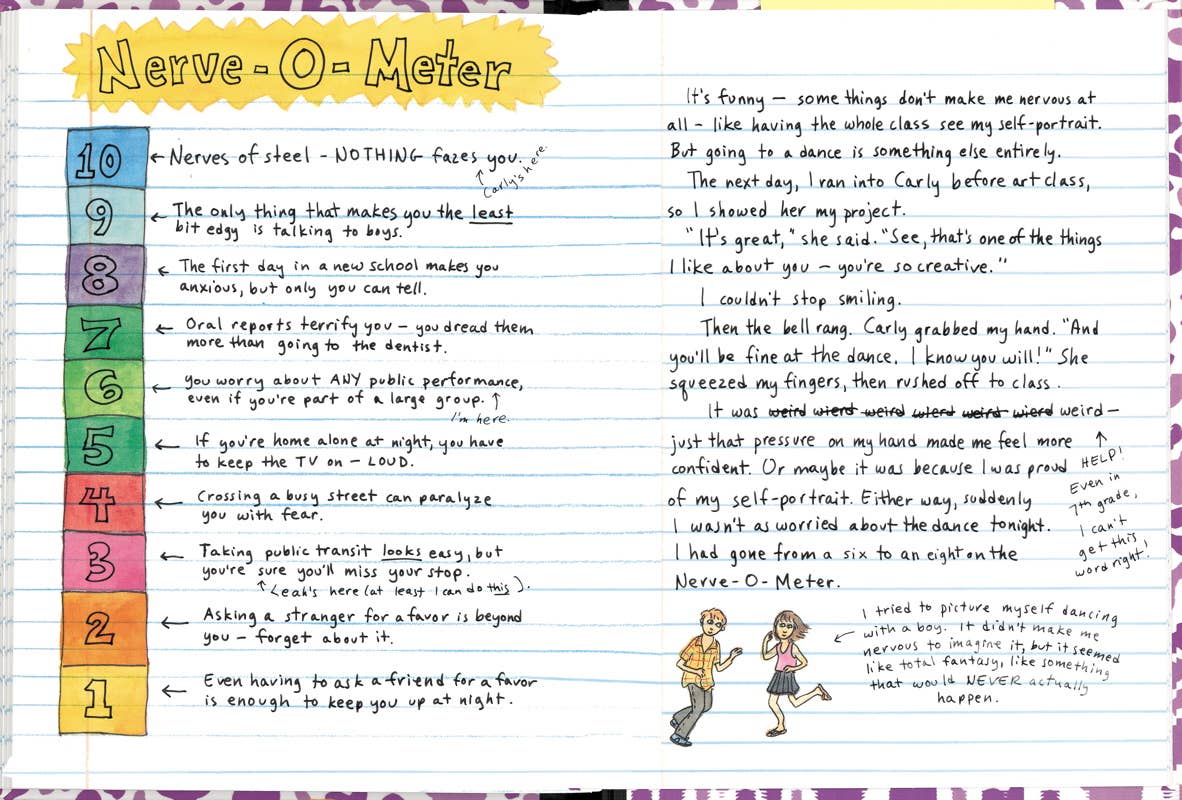 Nerve-O-Meter
10
Nerves of steel - NOTHING fazes you.
Carly's here.
9
The only thing that makes you the least
bit edgy is talking to boys.
8
The first day in a new school makes you
anxious, but only you can tell.
7
Oral reports terrify you - you dread them
more than going to the dentist.
6
You worry about ANY public performance,
even if you're part of a large group.
I'm here.
5
If you're home alone at night, you have
to keep the TV on - LOUD.
4
Crossing a busy street can paralyze
you with fear.
3
Taking public transit looks easy, but
you're sure you'll miss your stop.
Leah's here (at least I can do this).
2
Asking a stranger for a favor is beyond
you - forget about it.
1
Even having to ask a friend for a favor
is enough to keep you up at night.
It's funny - some things don't make me nervous at
all - like having the whole class see my self-portrait.
But going to a dance is something else entirely.
The next day, I ran into Carly before art class,
so I showed her my project.
"It's great," she said. "See, that's one of the things
I like about you - you're so creative."
I couldn't stop smiling.
Then the bell rang. Carly grabbed my hand. "And
you'll be fine at the dance. I know you will!" She
squeezed my fingers, then rushed off to class.
It was weird wierd weird wierd weird wierd weird -
just that pressure on my hand made me feel more
confident. Or maybe it was because I was proud
of my self-portrait. Either way, suddenly
I wasn't as worried about the dance tonight.
I had gone from a six to an eight on the
Nerve-O-Meter.
HELP!
Even in
7th grade,
I can't
get this
word right!
I tried to picture myself dancing
with a boy. It didn't make me
nervous to imagine it, but it seemed
like total fantasy, like something
that would NEVER actually
happen.